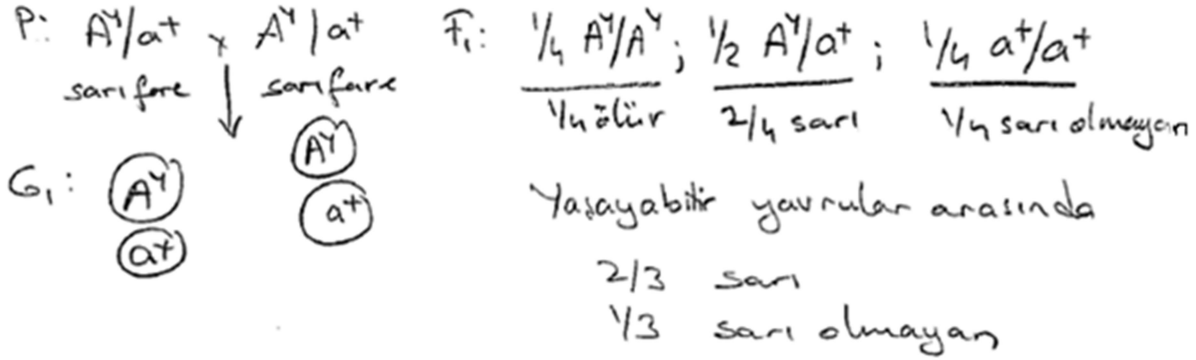 P: Aʸ/a⁺ x Aʸ/a⁺
sarı fare sarı fare
G₁: Aʸ Aʸ
a⁺ a⁺
F₁: 1/4 Aʸ/Aʸ ; 1/2 Aʸ/a⁺ ; 1/4 a⁺/a⁺
1/4 ölür 2/4 sarı 1/4 sarı olmayan
Yaşayabilir yavrular arasında
2/3 sarı
1/3 sarı olmayan